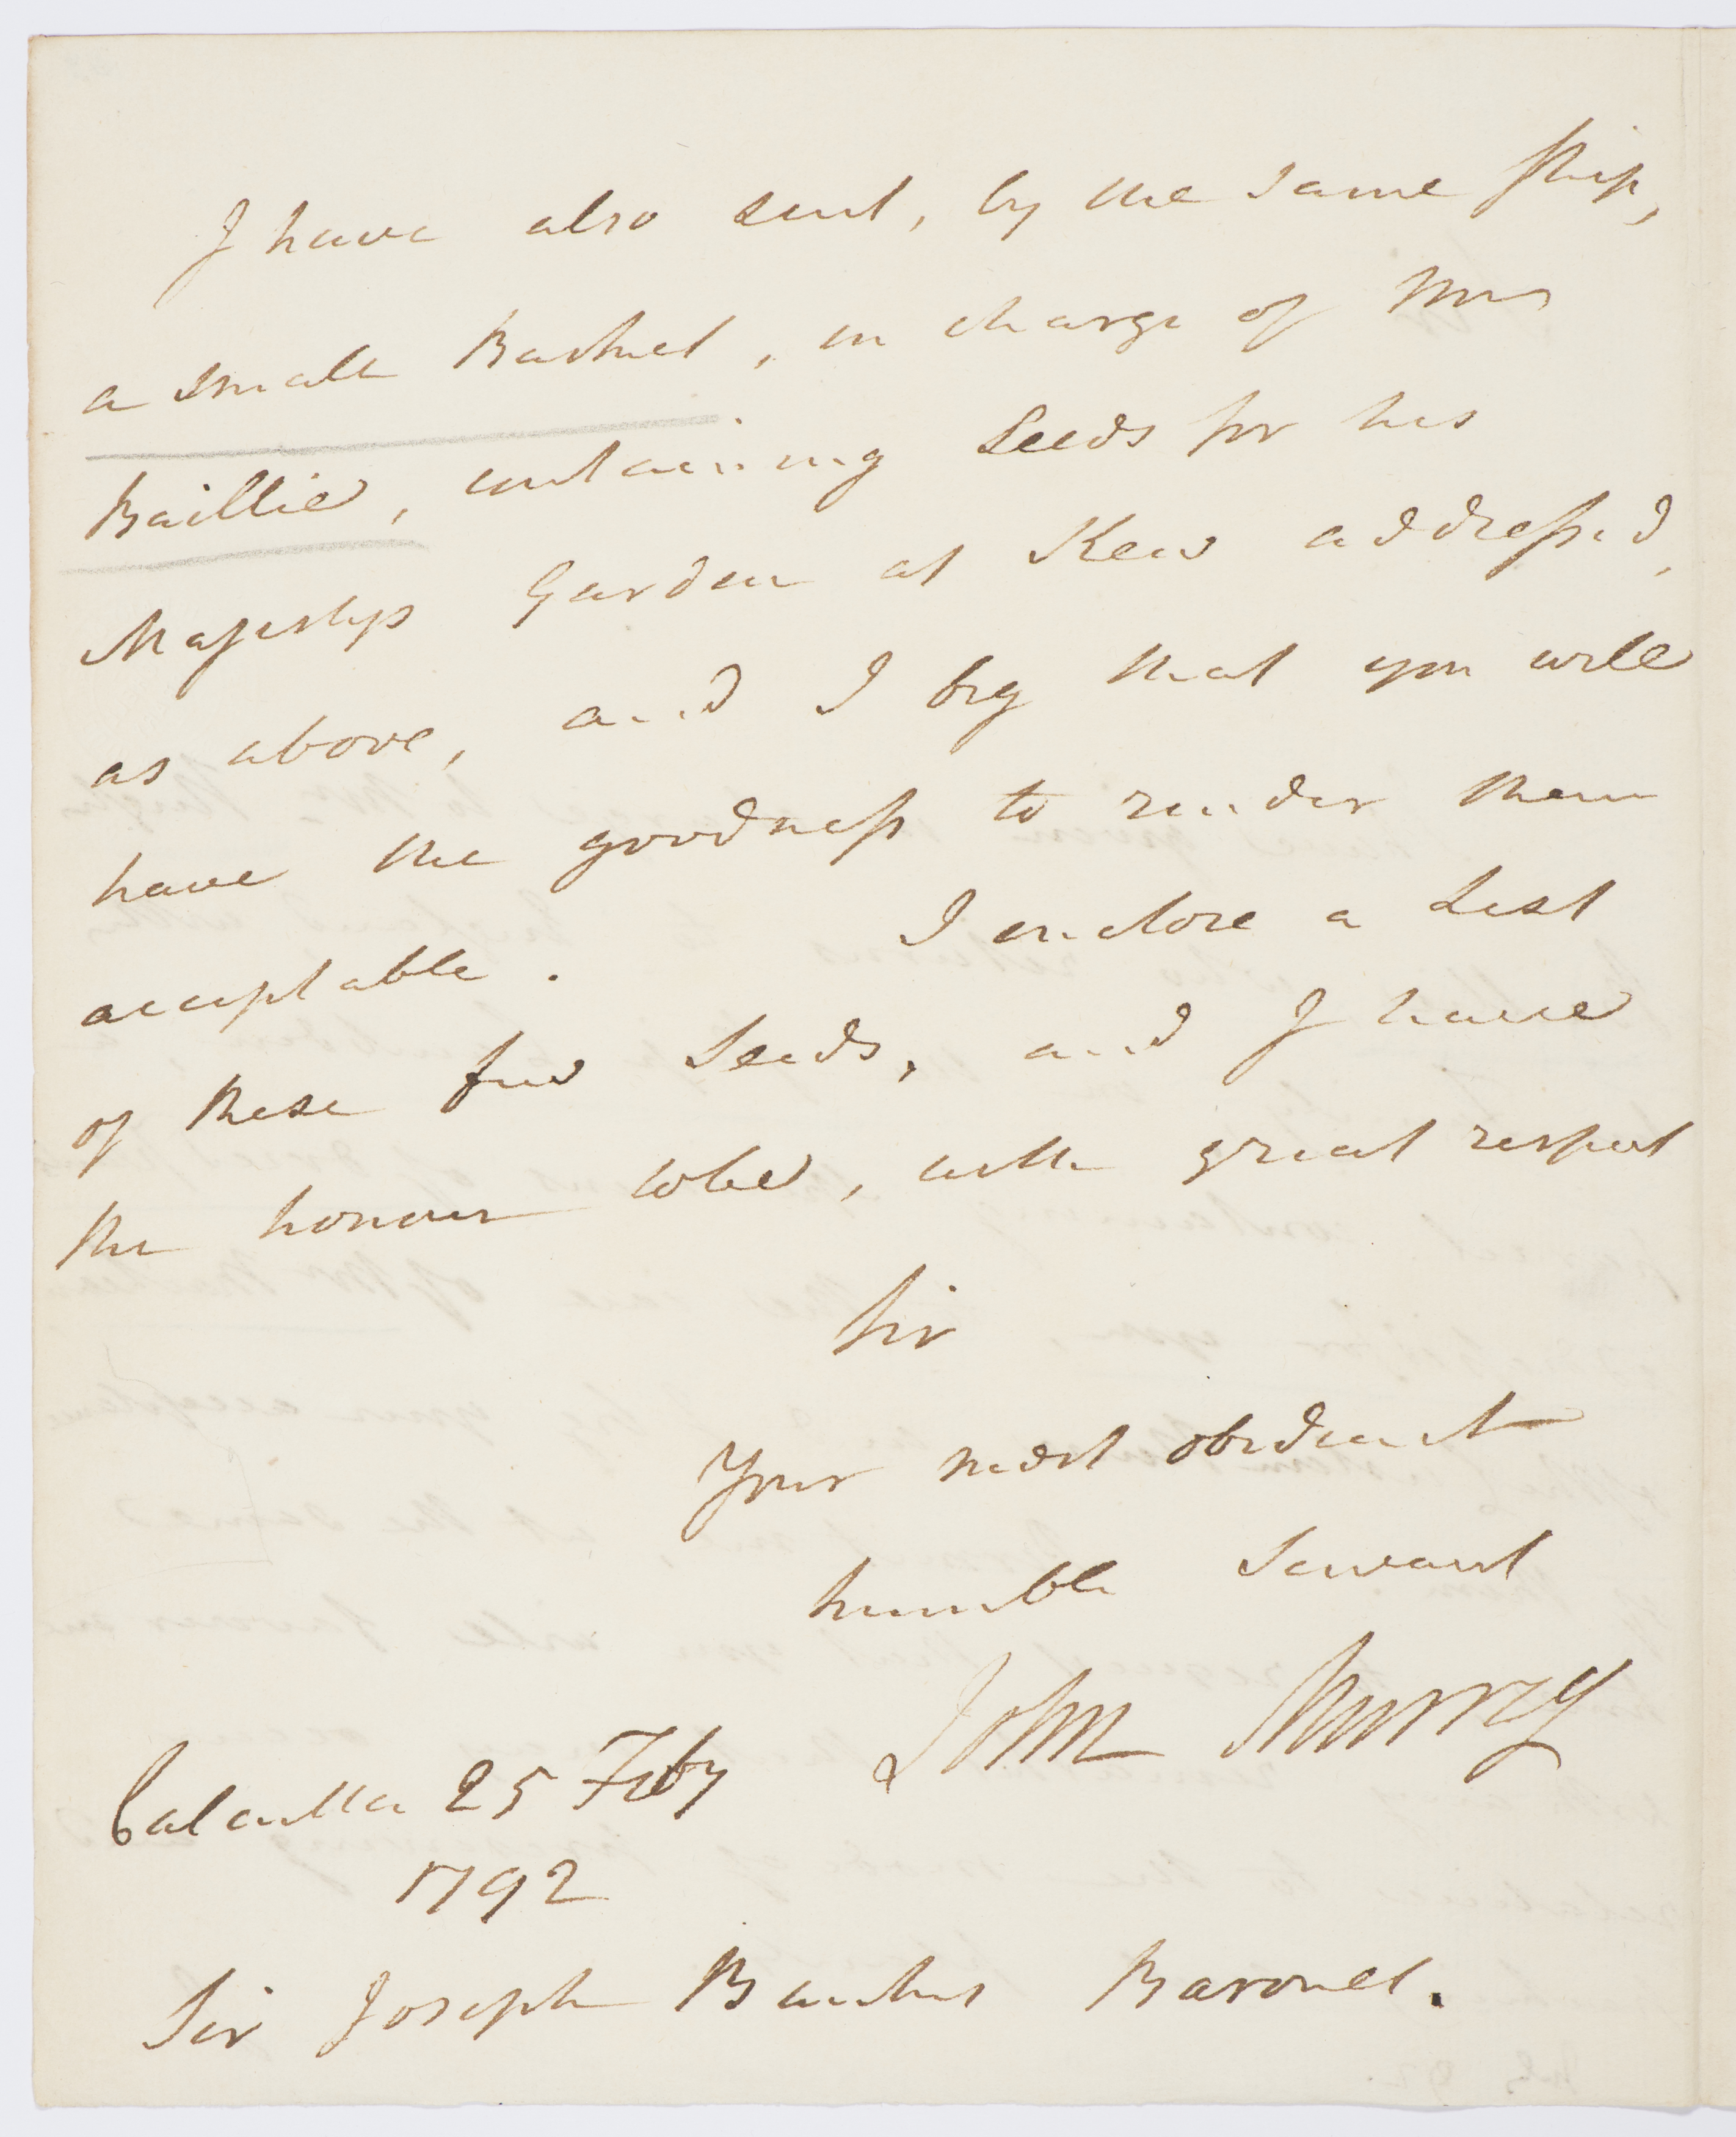 I have also sent, by the same ship,
a small Basket, in charge of Mrs
Baillie, containing Seeds for his
Majestys Garden at Kew address'd,
as above, and I beg that you will
have the goodness to render them
acceptable. I enclose a List
of these few Seeds, and I have
the honour to be, with great respect
Sir
Your most obedient
humble Servant
John Murray
Calcutta 25 Feby
1792
Sir Joseph Banks Baronet.